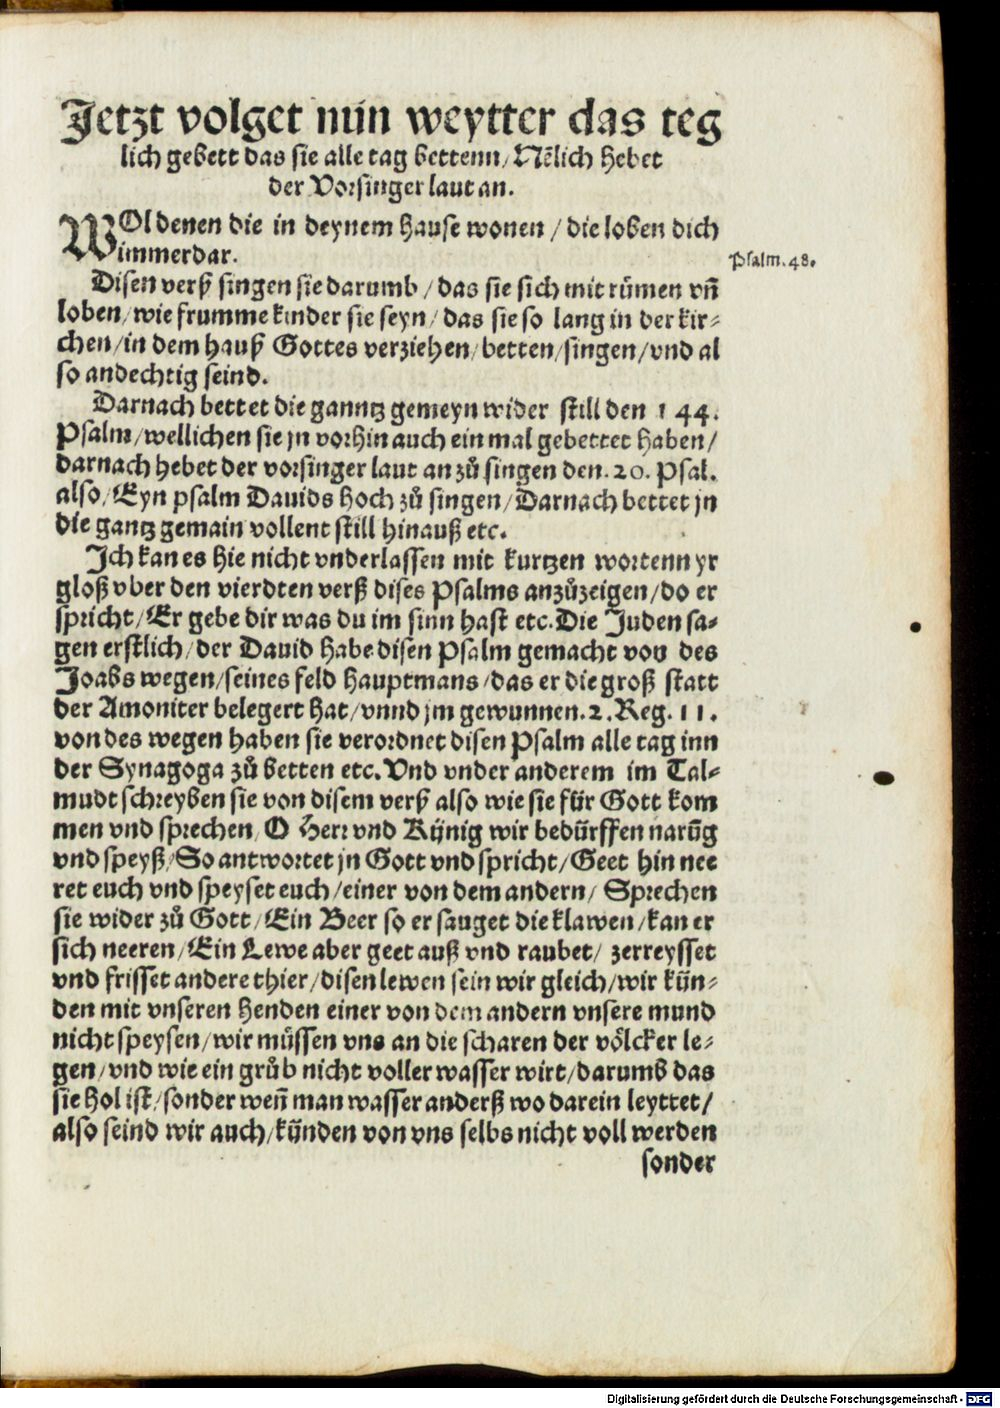 Jetzt volget nün weytter das teg
lich gebett das sie alle tag bettenn/ Nẽlich hebet
der Vorsinger laut an.
WOl denen die in deynem hause wonen / die loben dich
immerdar.
Psalm.48.
Disen verß singen sie darumb / das sie sich mit rümen vñ
loben/ wie frumme kinder sie seyn/ das sie so lang in der kir⸗
chen/ in dem hauß Gottes verziehen/ betten/ singen/ vnd al
so andechtig seind.
Darnach bettet die ganntz gemeyn wider still den 144.
Psalm/ wellichen sie jn vorhin auch ein mal gebettet haben/
darnach hebet der vorsinger laut an zů singen den. 20. Psal.
also/ Eyn psalm Dauids hoch zů singen/ Darnach bettet jn
die gantz gemain vollent still hinauß etc.
Ich kan es hie nicht vnderlassen mit kurtzen wortenn yr
gloß vber den vierdten verß dises Psalms anzůzeigen/ do er
spricht/ Er gebe dir was du im sinn hast etc. Die Juden sa⸗
gen erstlich/ der Dauid habe disen Psalm gemacht von des
Joabs wegen/ seines feld hauptmans/ das er die groß statt
der Amoniter belegert hat/ vnnd jm gewunnen. 2. Reg. 11.
von des wegen haben sie verordnet disen Psalm alle tag inn
der Synagoga zů betten etc. Vnd vnder anderem im Tal⸗
mudt schreyben sie von disem verß also wie sie für Gott kom
men vnd sprechen/ O Herr vnd Künig wir bedürffen narũg
vnd speyß/ So antwortet jn Gott vnd spricht/ Geet hin nee
ret euch vnd speyset euch/ einer von dem andern/ Sprechen
sie wider zů Gott/ Ein Beer so er sauget die klawen/ kan er
sich neeren/ Ein Lewe aber geet auß vnd raubet/ zerreysset
vnd frisset andere thier/ disen lewen sein wir gleich/ wir kün⸗
den mit vnseren henden einer von dem andern vnsere mund
nicht speysen/ wir müssen vns an die scharen der völcker le⸗
gen/ vnd wie ein grůb nicht voller wasser wirt/ darumb das
sie hol ist/ sonder weñ man wasser anderß wo darein leyttet/
also seind wir auch/ künden von vns selbs nicht voll werden
sonder
Digitalisierung gefördert durch die Deutsche Forschungsgemeinschaft - DFG